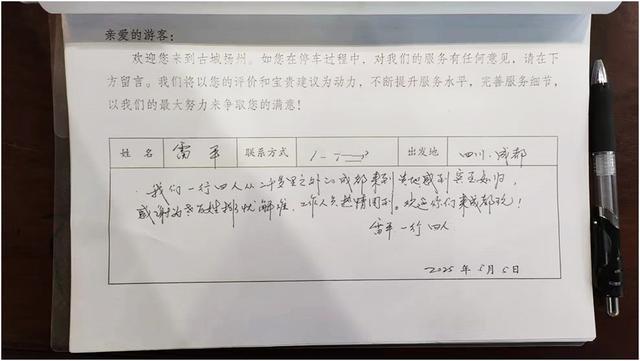 亲爱的游客：
欢迎您来到古城扬州。如您在停车过程中，对我们的服务有任何意见，请在下
方留言。我们将以您的评价和宝贵建议为动力，不断提升服务水平，完善服务细节，
以我们的最大努力来争取您的满意！
姓 名 雷平 联系方式 出发地 四川·成都
我们一行四人从二千多里之外的成都来到贵地感到宾至如归，
感谢为老百姓排忧解难，工作人员热情周到。欢迎你们来成都玩！
雷平一行四人
2025年5月5日